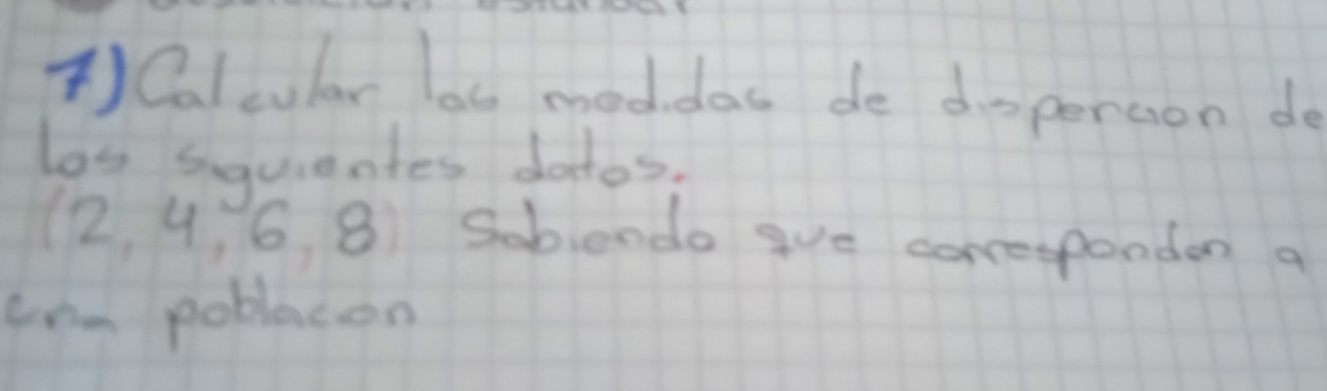 7) Calcular las medidas de dispercion de
los siguientes datos.
(2, 4, 6, 8) Sabiendo que corresponden a
una poblacion